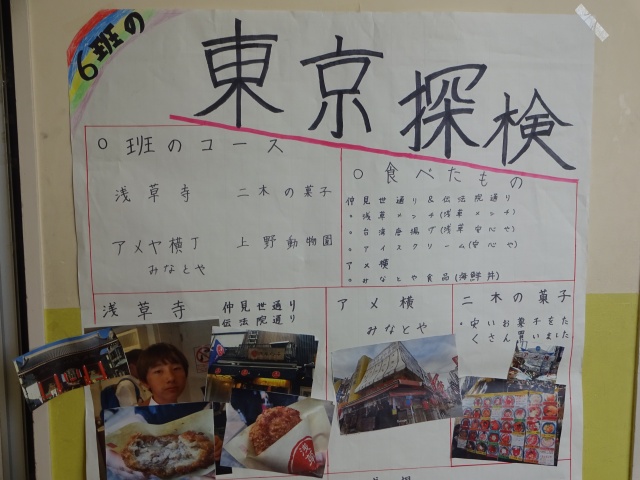 6班の
東京探検
○ 班のコース
浅草寺 二木の菓子
アメヤ横丁 上野動物園
みなとや
○ 食べたもの
仲見世通り & 伝法院通り
・浅草メンチ(浅草メンチ)
・台湾唐揚げ(浅草安心や)
・アイスクリーム(安心や)
アメ横
・みなとや食品(海鮮丼)
浅草寺 仲見世通り
伝法院通り
アメ横
みなとや
二木の菓子
・安いお菓子をた
くさん買いました